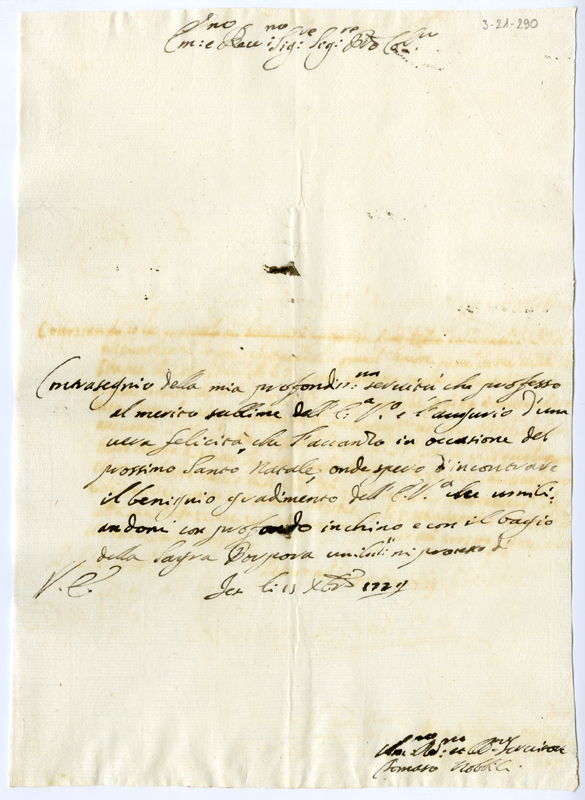 3-21-290
Em:mo e Rev:mo Sig:re Sig:re Pro Col:mo
Contrasegnio della mia profondiss:ma servitù che professo
al merito sublime dell' E:a V:a è l'augurio d'una
vera felicità che l'accanto in occasione del
prossimo Santo Natale, onde spero d'incontrare
il benignio gradimento dell' E:V:a che umili,
andomi con profondo inchino e con il bagio
della Sagra Porpora umilis:te mi protesto di
V. E. Jesi li 15 Xbre 1729
Um:mo Dev:mo et Obb:mo Servitore
Tomaso Nobili